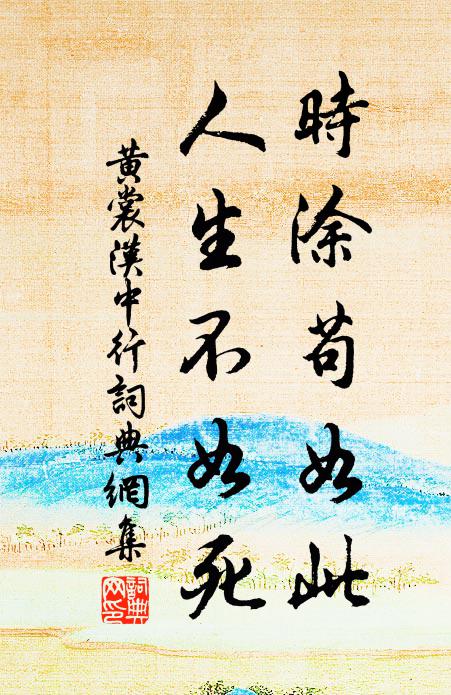 時涂苟如此
人生不如死
黃裳漢中行詞典網集